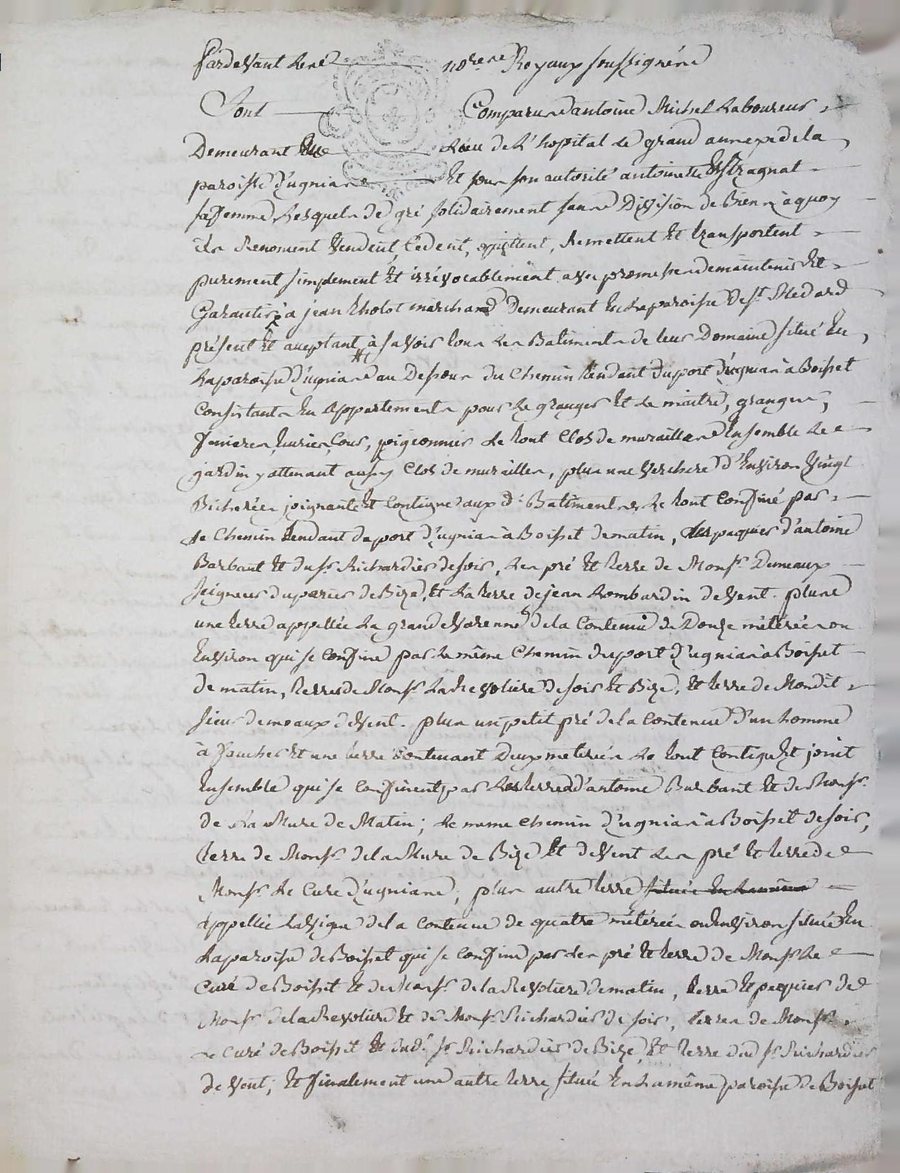 Pardevant René no.res Royaux soussignéz
Sont Comparuz antoine Michel Laboureur
Demeurant au Lieu de L'hopital le grand annexe de la
paroisse d'ugnias Et sous son autorité antoinette
sa femme Lesquels de gré solidairement sans Division de Bien à quoy
ils Renoncent Vendent, Cedent, quittent, Remettent Et transportent
purement simplement Et irrévocablement avec promesse de maintenir Et
Garantir à jean Cholot marchand Demeurant En La paroisse De St. Medard
présent Et acceptant à savoir tous Les Batiments de leur Domaine situé En
La paroisse d'ugnias au Dessous du Chemin tendant du port d'ugnias à Boisset
Consistants En appartements pour Le granger Et le maitre, granges,
fenieres, Ecuries, Cour, pigeonnier le tout Clos de murailles Ensemble Le
jardin y attenant aussy Clos de murailles, plus une verchere d'Environ vingt
Bicherées joignante Et Contigue aux d. Batiments Le tout Confiné par
le Chemin tendant du port d'ugnias à Boisset de matin, Les paquiers d'antoine
Barbant Et du Sr. Richardier de soir, Les pré Et terre de Monsr. Demeaux
seigneur du perier de Bize, Et La terre de jean Lombardin de Vent. plus
une terre appellée La grande Varenne de la Contenue de Douze métérées ou
Environ qui se Confine par Le même Chemin du port d'ugnias à Boisset
de matin, terres de Monsr. La Revoliere de soir Et Bize, Et terre de Mondit
sieur demeaux de Vent. plus un petit pré de la Contenue d'un homme
à faucher Et une terre Contenant Deux métérées Le tout Contigu Et joint
Ensemble qui se Confinent par Les terres d'antoine Barbant Et de Monsr.
de La Mure de Matin; Le meme Chemin d'ugnias à Boisset de soir,
terre de Monsr. de la Mure de Bize Et de Vent Les pré Et terre de
Monsr. Le Curé d'ugnias; plus autre terre située En La même
appellée La Vigne de la Contenue de quatre métérées ou Environ située En
La paroisse de Boisset qui se Confine par Les pré Et terre de Monsr. Le
Curé de Boisset Et de Monsr. de la Revoliere de matin, terre Et paquier de
Monsr. de la Revoliere Et de Monsr. Richardier de soir, terres de Monsr.
Le Curé de Boisset Et dud. Sr. Richardier de Bize, Et terre dud Sr. Richardier
de Vent; Et finalement une autre terre située En La même paroisse de Boisset